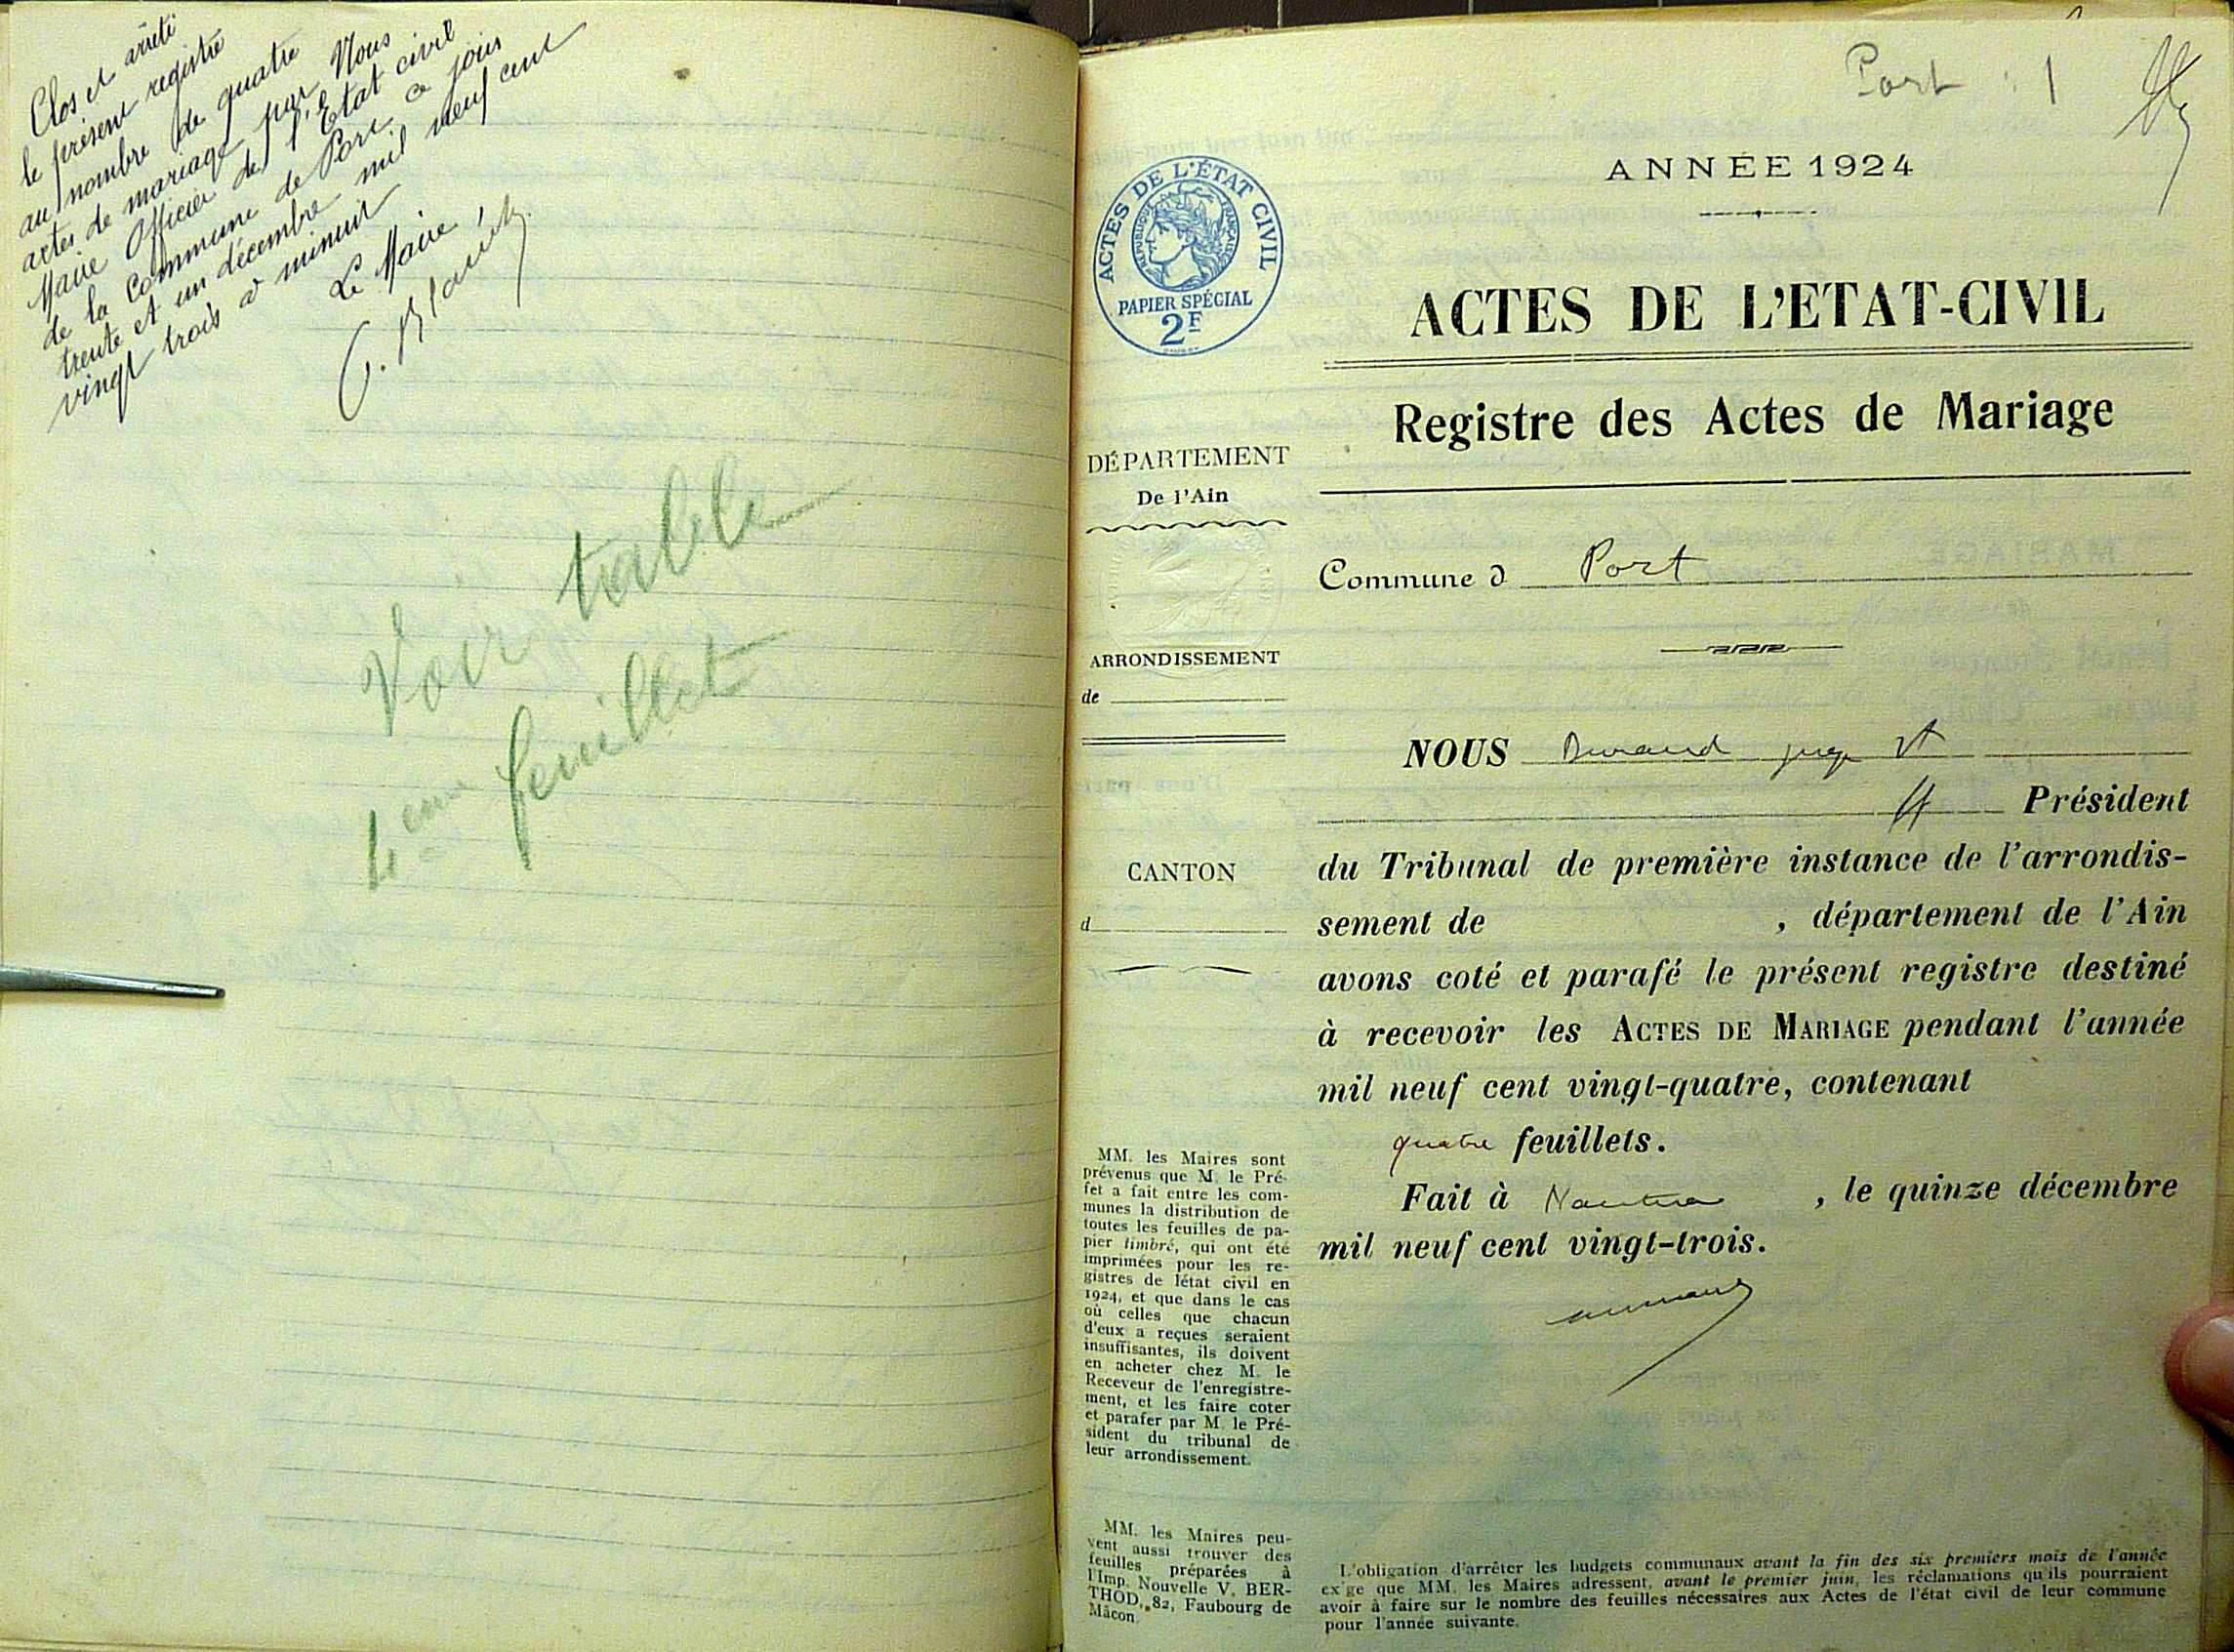 Clos et arrêté
le présent registre
au nombre de quatre
actes de mariage par Nous
Maire Officier de l'Etat civil
de la Commune de Port ce jour
trente et un décembre mil neuf cent
vingt trois à minuit
Le Maire,
Voir table
4eme feuillet
Port : 1
ANNÉE 1924
ACTES DE L'ÉTAT CIVIL
RÉPUBLIQUE FRANÇAISE
PAPIER SPÉCIAL
2F
ACTES DE L'ETAT-CIVIL
Registre des Actes de Mariage
DÉPARTEMENT
De l'Ain
Commune d Port
ARRONDISSEMENT
de
NOUS Durand juge
ff Président
CANTON
d
du Tribunal de première instance de l'arrondis-
sement de , département de l'Ain
avons coté et parafé le présent registre destiné
à recevoir les ACTES DE MARIAGE pendant l'année
mil neuf cent vingt-quatre, contenant
quatre feuillets.
Fait à Nantua , le quinze décembre
mil neuf cent vingt-trois.
MM. les Maires sont
prévenus que M. le Pré-
fet a fait entre les com-
munes la distribution de
toutes les feuilles de pa-
pier timbré, qui ont été
imprimées pour les re-
gistres de létat civil en
1924, et que dans le cas
où celles que chacun
d'eux a reçues seraient
insuffisantes, ils doivent
en acheter chez M. le
Receveur de l'enregistre-
ment, et les faire coter
et parafer par M. le Pré-
sident du tribunal de
leur arrondissement.
MM. les Maires peu-
vent aussi trouver des
feuilles préparées à
l'Imp. Nouvelle V. BER-
THOD, 82, Faubourg de
Mâcon.
L'obligation d'arrêter les budgets communaux avant la fin des six premiers mois de l'année
ex'ge que MM. les Maires adressent, avant le premier juin, les réclamations qu'ils pourraient
avoir à faire sur le nombre des feuilles nécessaires aux Actes de l'état civil de leur commune
pour l'année suivante.